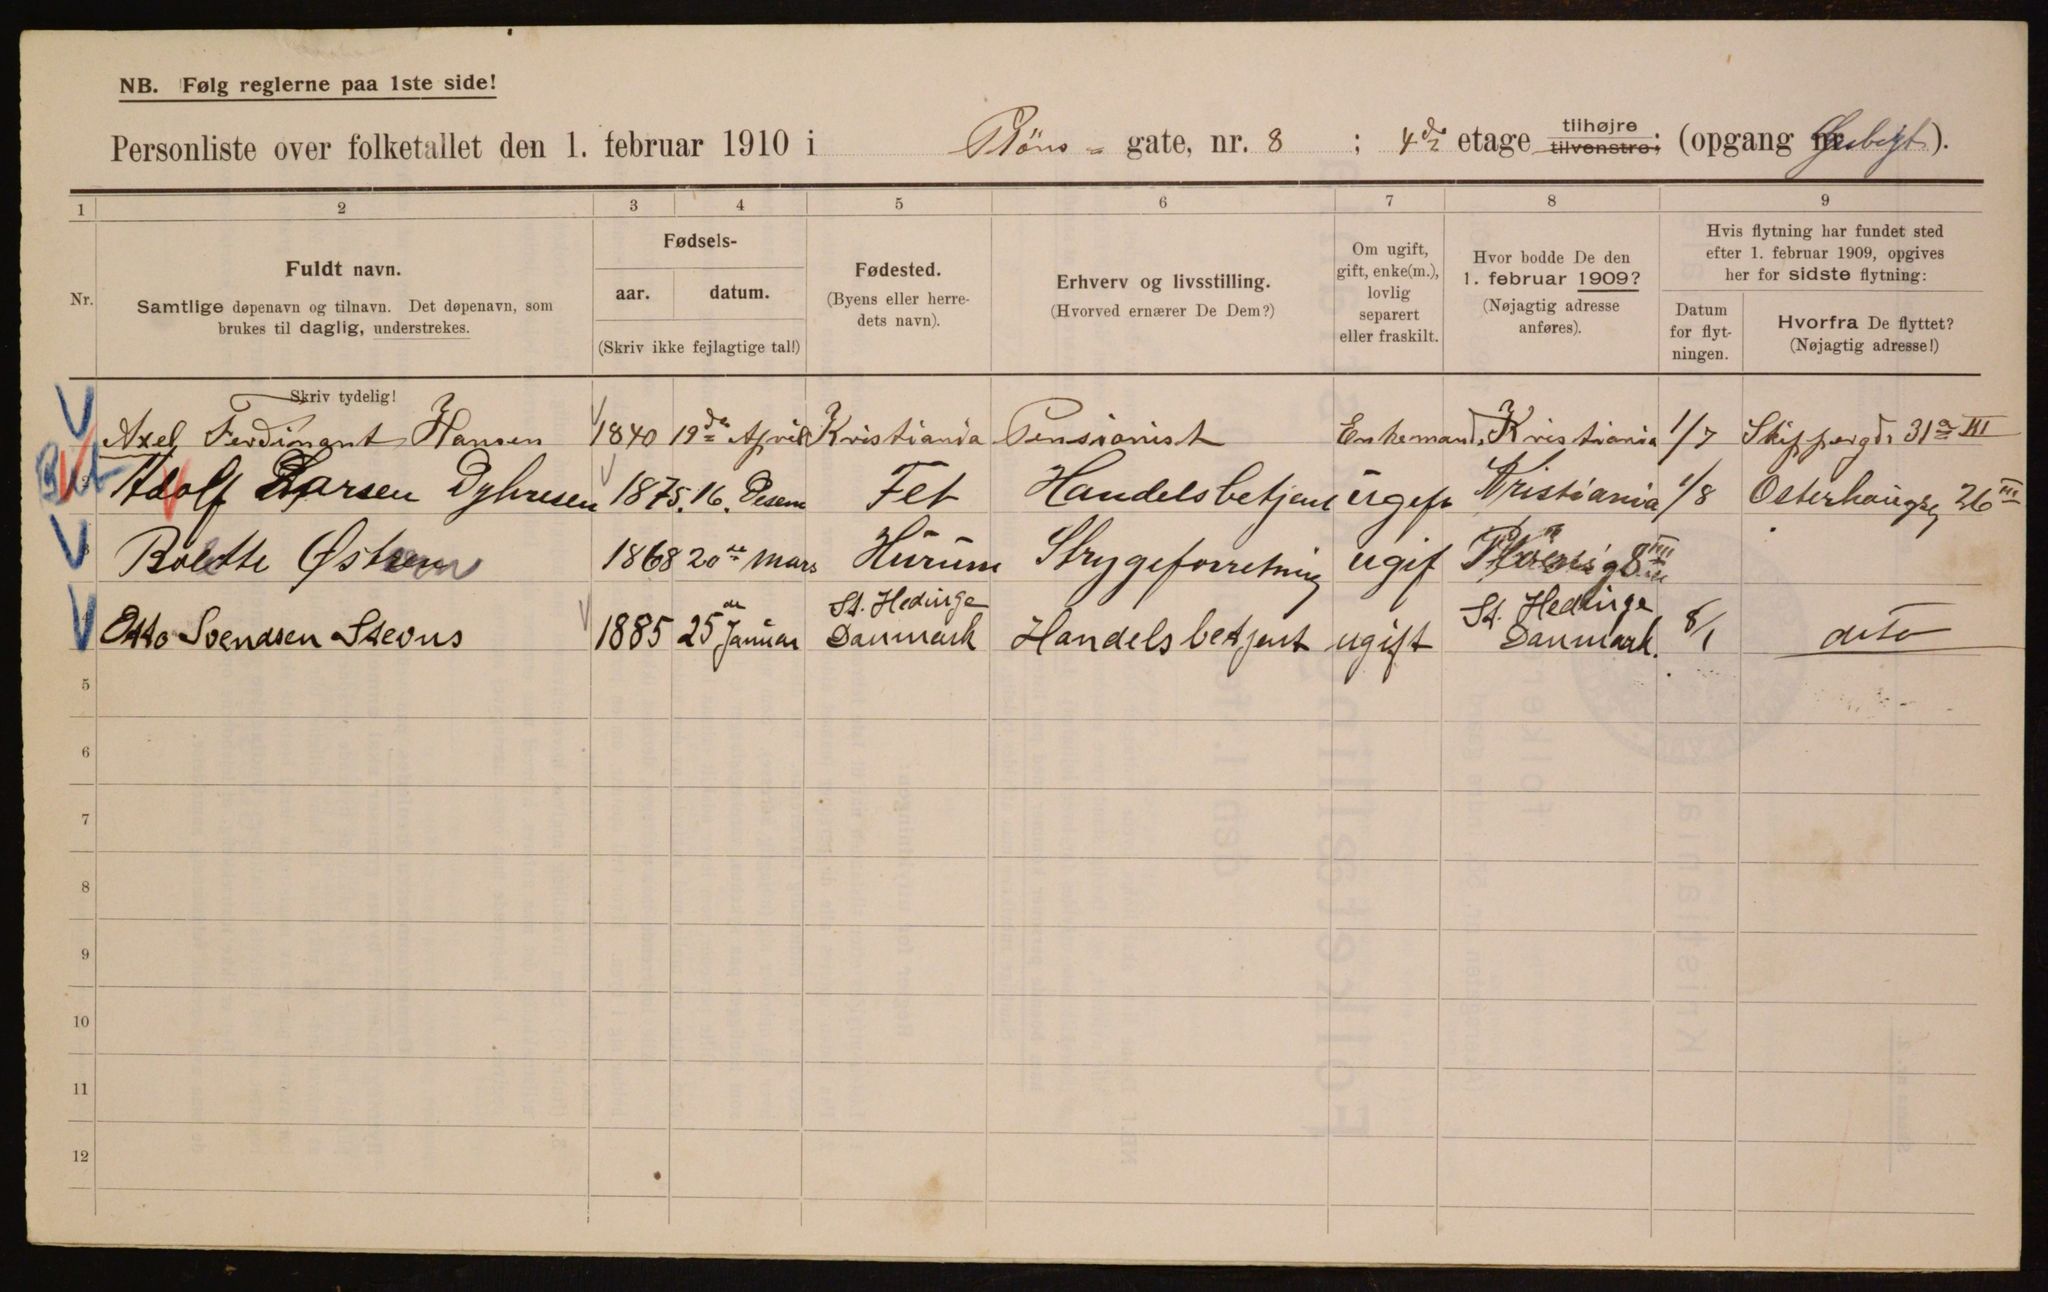 NB. Følg reglerne paa 1ste side!
Personliste over folketallet den 1. februar 1910 i Pløns- gate, nr. 8 ; 4de etage tilhøjre tilvenstre; (opgang nr. ).
1 2 3 4 5 6 7 8 9
Nr. Fuldt navn. Samtlige døpenavn og tilnavn. Det døpenavn, som brukes til daglig, understrekes.
Fødsels- aar. datum. (Skriv ikke fejlagtige tal!)
Fødested. (Byens eller herredets navn).
Erhverv og livsstilling. (Hvorved ernærer De Dem?)
Om ugift, gift, enke(m.), lovlig separert eller fraskilt.
Hvor bodde De den 1. februar 1909? (Nøjagtig adresse anføres).
Hvis flytning har fundet sted efter 1. februar 1909, opgives her for sidste flytning:
Datum for flytningen. Hvorfra De flyttet? (Nøjagtig adresse!)
Skriv tydelig!
Axel Ferdinant Hansen 1840 19de April Kristiania Pensionist Enkemand Kristiania 1/7 Skippergd. 31a III
Adolf Larsen Dyhresen 1875. 16. Desem Fet Handelsbetjent ugift Kristiania 1/8 Osterhausg 26 III
3 Bolette Østern 1868 20de Mars Hurum Strygeforretning ugif Pløensg 8 IIII
Otto Svendsen Stevns 1885 25de Januar St. Hedinge Danmark Handelsbetjent ugift St. Hedinge Danmark. 8/1 dito
5
6
7
8
9
10
11
12